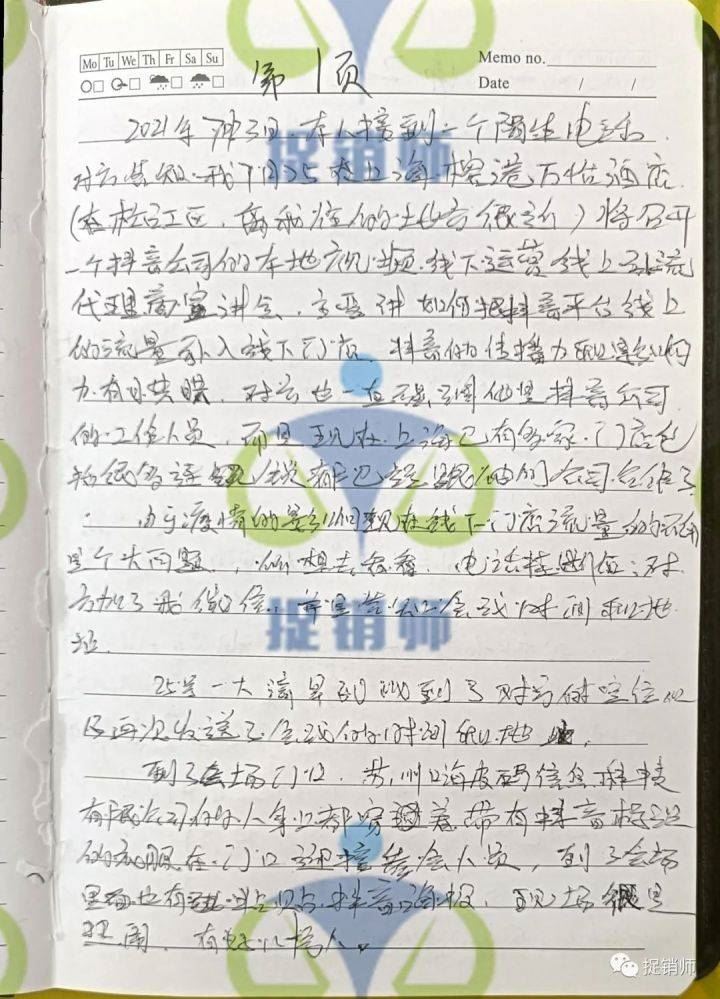 Mo Tu We Th Fr Sa Su
Memo no.
Date / /
第1页
2021年7月23日,本人接到一个陌生电话,
对方告知我7月25在上海 万怡酒店
(在松江区,离我住的地方很近)将召开
一个抖音公司的本地 视频线下运营线上引流
代理商宣讲会,主要讲如何把抖音平台线上
的流量引入线下门店,抖音的传播力和影响
力有目共睹,对方也一直强调他是抖音公司
的工作人员,而且现在上海已有多家门店包
括很多连锁都已经跟他们公司合作了
由于疫情的影响现在线下门店流量 
是个大问题,所以想去看看,电话挂断后对
方加了我微信,并且告知了会议时间和地
址。
25号一大清早就收到了对方的定位他
们再次发送了会议的时间和地址,
到了会场门口,苏州 海度码信息科技
有限公司的人身上都穿着带有抖音标识
的衣服在门口迎接参会人员,到了会场
里面也有 抖音海报,现场很是
,有好几桌人。
捉销师
捉销师
捉销师